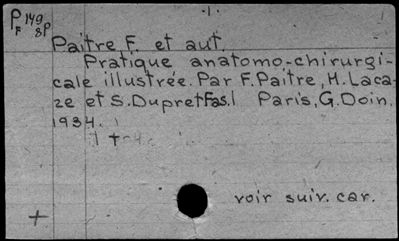 P 149
F 8P
Paitre F. et aut.
Pratique anatomo-chirurgi-
cale illustrée. Par F. Paitre, H. Laca-
ze et S. Dupret Fas.1 Paris, G. Doin.
1934.
voir suiv. car.